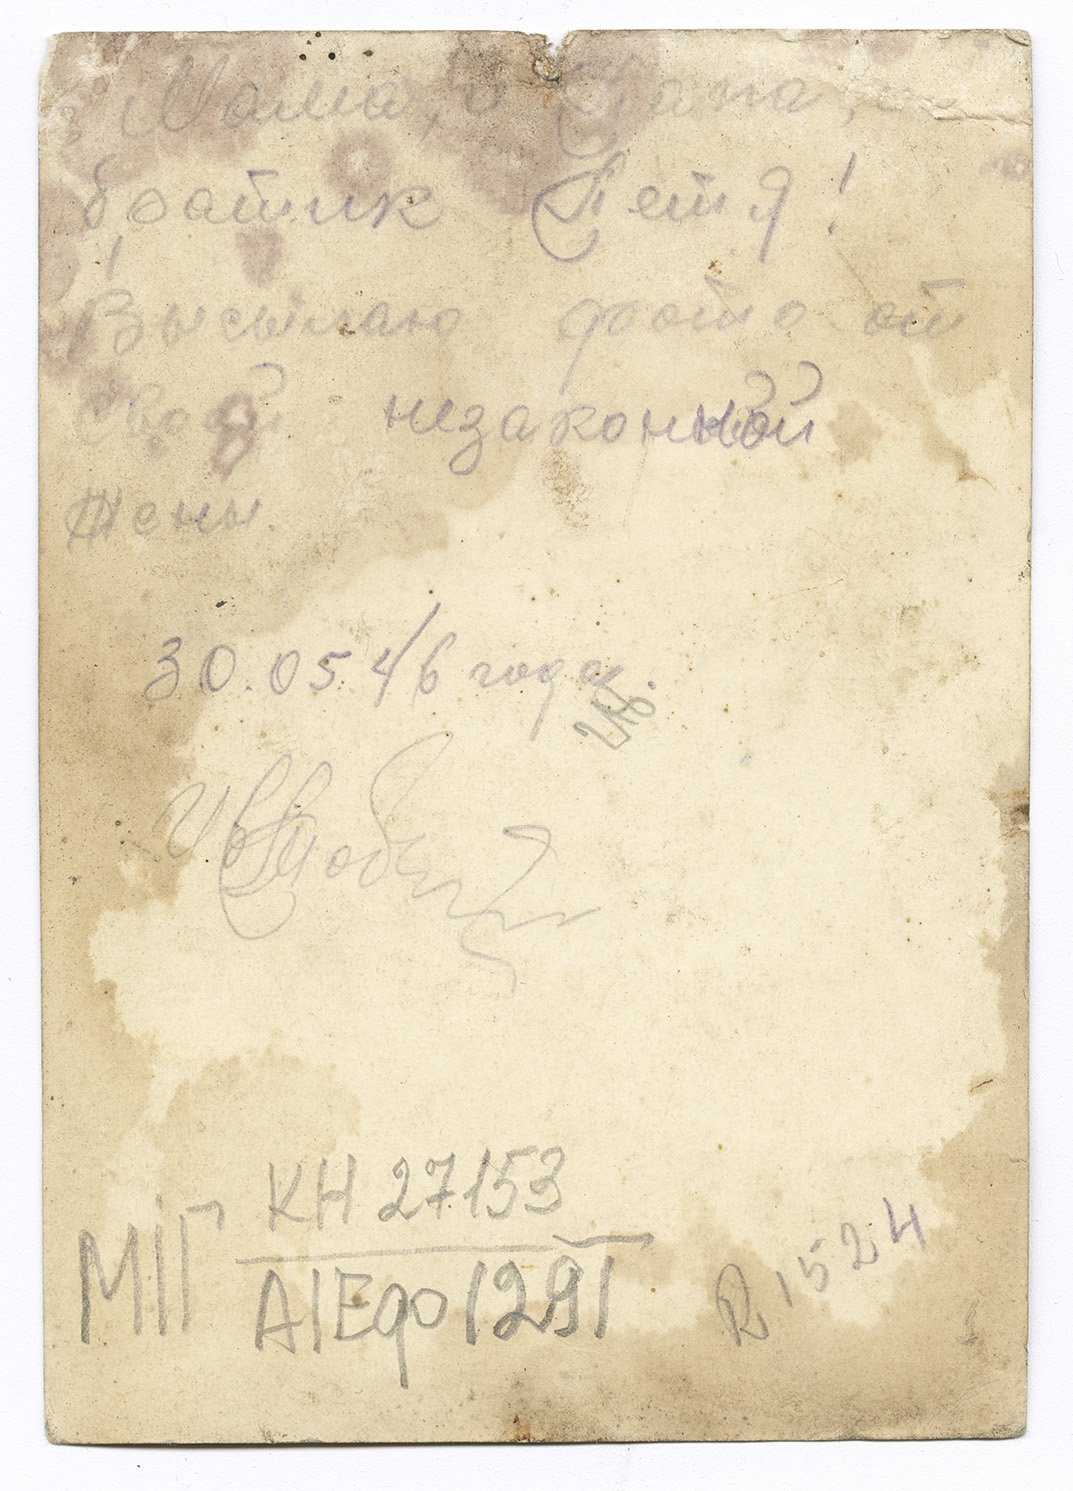 Мама, и Папа, и
братик Петя!
Высылаю фото от
свой незаконной
жены.
30.05.46 года.
КН 27153
МІГ АІЕфо 1291
R 1524